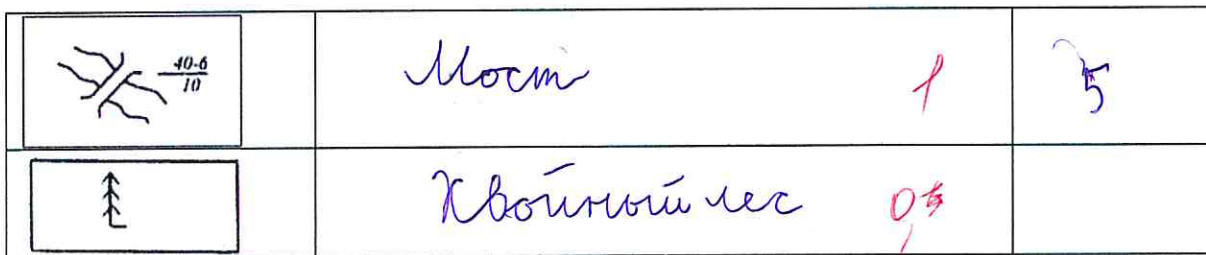 40-6
10
Мост 1 5
Хвойный лес 0,5